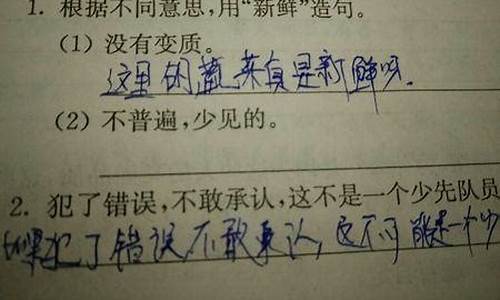 1. 根据不同意思,用“新鲜”造句。
(1) 没有变质。
这里的蔬菜真是新鲜呀.
(2) 不普遍,少见的。
2. 犯了错误,不敢承认,这不是一个少先队员
如果犯了错误不敢承认,这不可能是一个少